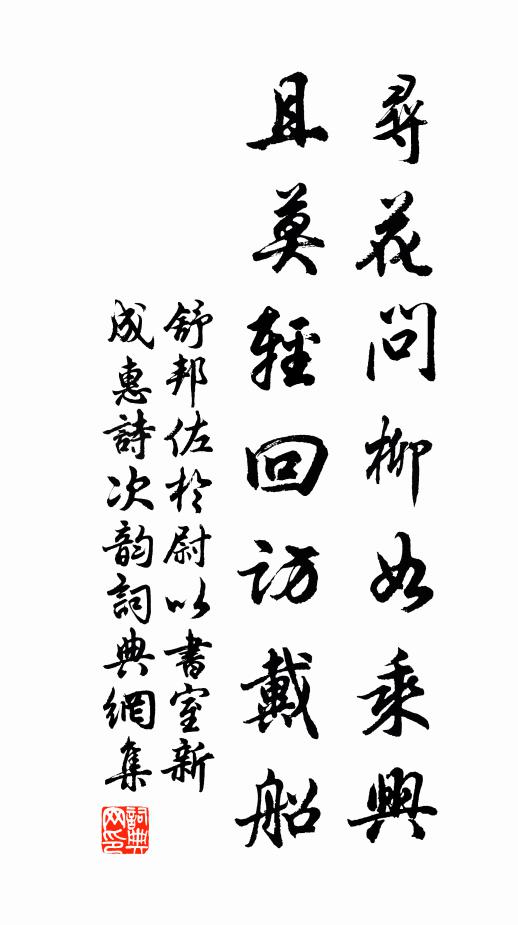 尋花問柳如乘興
且莫輕回訪戴船
舒邦佐於尉以書室新
成惠詩次韵詞典網集
詞典网印